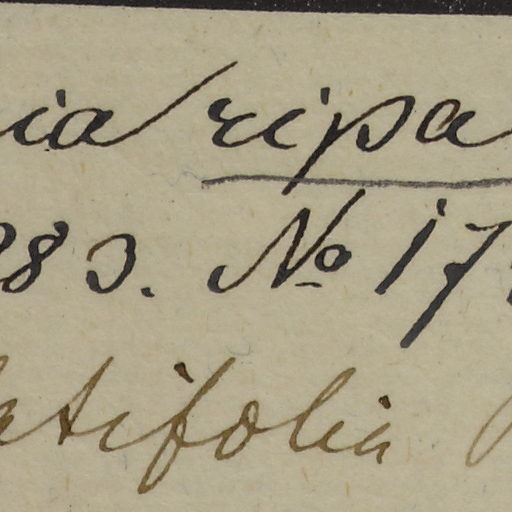 ia ripa
83. No 17
atifolia